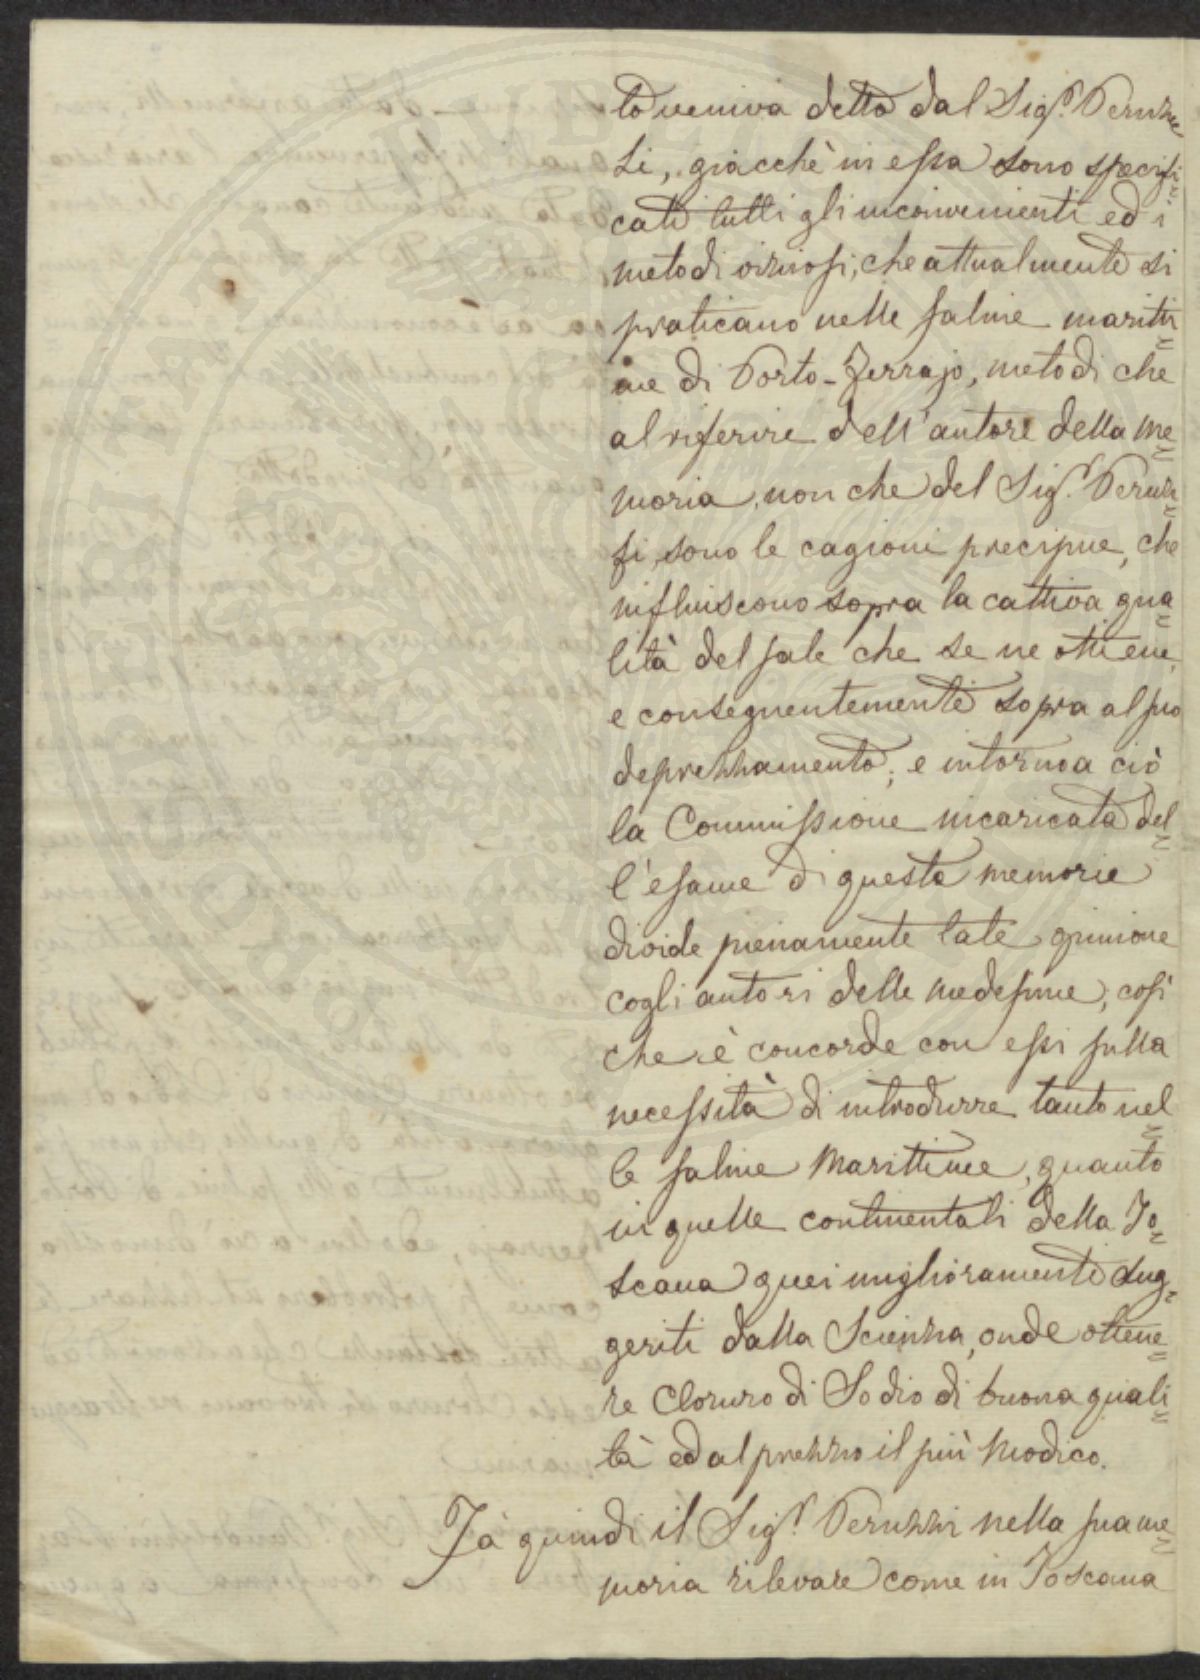 to veniva detto dal Sig.r Peruzze
si, giacchè in essa sono specifi
cati tutti gli inconvenienti ed i
metodi viziosi, che attualmente si
praticano nelle saline maritti
me di Porto-Ferrajo, metodi che
al riferire dell'autore della me
moria, non che del Sig.r Peruz
zi, sono le cagioni precipue, che
influiscono sopra la cattiva qua
lità del sale che se ne ottiene,
e conseguentemente sopra al suo
deprezzamento; e intorno a ciò
la Commissione incaricata del
l'esame di queste memorie
divide pienamente tale opinione
cogli autori delle medesime, cosi
che è concorde con essi sulla
necessità di introdurre tanto nel
le saline Marittime, quanto
in quelle continentali della To
scana quei miglioramenti sug
geriti dalla Scienza, onde ottene
re Cloruro di Sodio di buona quali
tà ed al prezzo il più modico.
Fà quindi il Sig.r Peruzzi nella sua me
moria rilevare come in Toscana